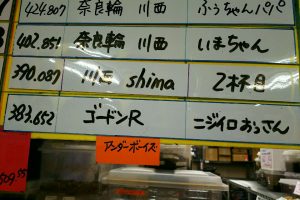 424.807 奈良輪 川西 ふぅちゃんパパ
402.851 奈良輪 川西 いまちゃん
390.087 川西 shima 2杯目
383.652 ゴードンR ニジイロおっさん
アンダーボーイズ
509.55